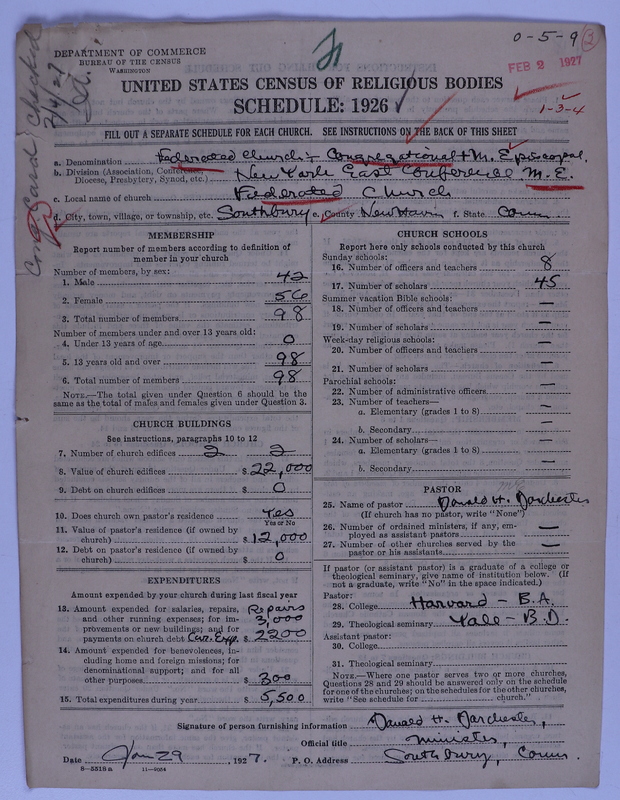 DEPARTMENT OF COMMERCE
BUREAU OF THE CENSUS
WASHINGTON
0-5-9 2
FEB 2 1927
1-3-4
UNITED STATES CENSUS OF RELIGIOUS BODIES
SCHEDULE: 1926
FILL OUT A SEPARATE SCHEDULE FOR EACH CHURCH. SEE INSTRUCTIONS ON THE BACK OF THIS SHEET
a. Denomination Federated Church:- Congregational & M. Episcopal.
b. Division (Association, Conference, Diocese, Presbytery, Synod, etc.) New York East Conference M.E.
c. Local name of church Federated Church
d. City, town, village, or township, etc. Southbury e. County New Haven f. State Conn.
MEMBERSHIP
Report number of members according to definition of
member in your church
Number of members, by sex:
1. Male 42
2. Female 56
3. Total number of members 98
Number of members under and over 13 years old:
4. Under 13 years of age 0
5. 13 years old and over 98
6. Total number of members 98
NOTE.—The total given under Question 6 should be
the same as the total of males and females given under Question 3.
CHURCH BUILDINGS
See instructions, paragraphs 10 to 12
7. Number of church edifices 2 2
8. Value of church edifices $ 22,000
9. Debt on church edifices $ 0
10. Does church own pastor's residence? Yes
Yes or No
11. Value of pastor's residence (if owned by
church) $ 12,000
12. Debt on pastor's residence (if owned by
church) $ 0
EXPENDITURES
Amount expended by your church during last fiscal year
13. Amount expended for salaries, repairs, Repairs
and other running expenses; for im- 3,000
provements or new buildings; and for
payments on church debt Curr. Exp. $ 2200
14. Amount expended for benevolences, in-
cluding home and foreign missions; for
denominational support; and for all
other purposes $ 300
15. Total expenditures during year $ 5,500
CHURCH SCHOOLS
Report here only schools conducted by this church
Sunday schools:
16. Number of officers and teachers 8
17. Number of scholars 45
Summer vacation Bible schools:
18. Number of officers and teachers —
19. Number of scholars —
Week-day religious schools:
20. Number of officers and teachers —
21. Number of scholars —
Parochial schools:
22. Number of administrative officers —
23. Number of teachers—
a. Elementary (grades 1 to 8) —
b. Secondary —
24. Number of scholars—
a. Elementary (grades 1 to 8) —
b. Secondary —
PASTOR
25. Name of pastor Donald H. Dorchester
(If church has no pastor, write "None")
26. Number of ordained ministers, if any, em-
ployed as assistant pastors —
27. Number of other churches served by the
pastor or his assistants —
If pastor (or assistant pastor) is a graduate of a college or
theological seminary, give name of institution below. (If
not a graduate, write "No" in the space indicated.)
Pastor:
28. College Harvard - B.A.
29. Theological seminary Yale - B.D.
Assistant pastor:
30. College
31. Theological seminary
NOTE.—Where one pastor serves two or more churches,
Questions 28 and 29 should be answered only on the schedule
for one of the churches; on the schedules for the other churches,
write "See schedule for ........ church."
Signature of person furnishing information Donald H. Dorchester,
Official title Minister,
Date Jan 29 1927. P. O. Address Southbury, Conn.
8-5518 a 11-9054